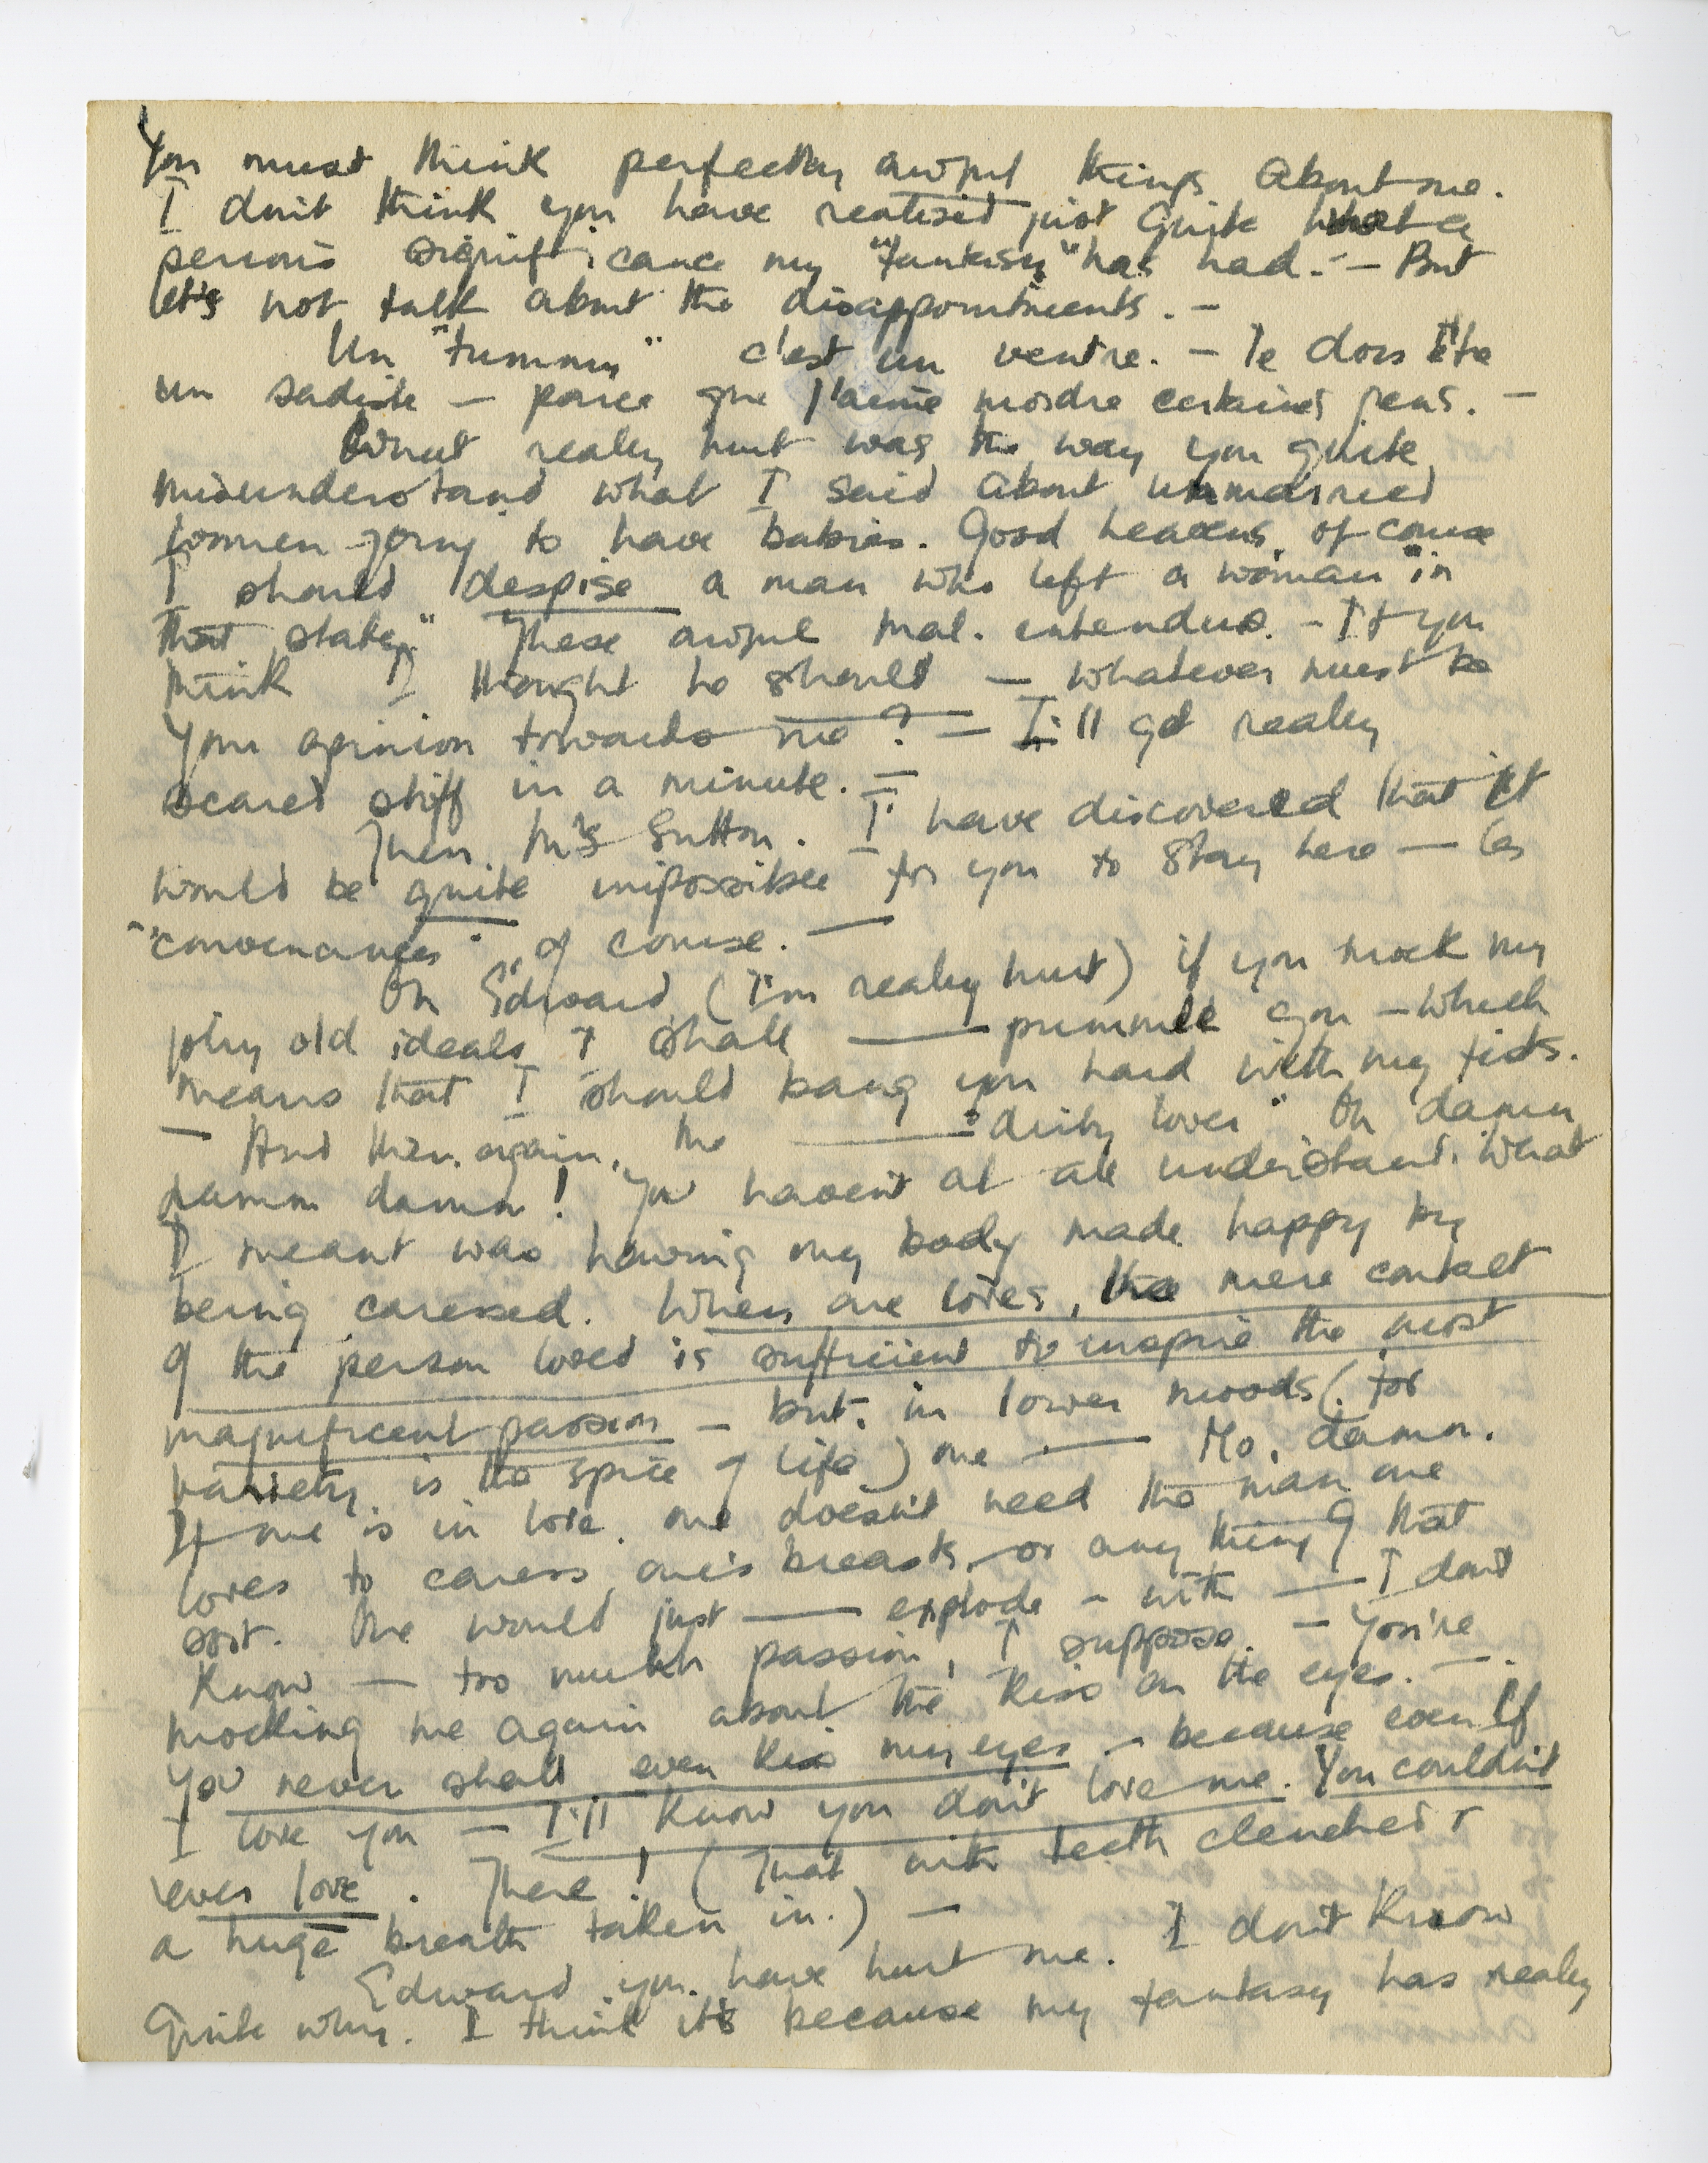 You must think perfectly awful things about me.
I don't think you have realised just quite what a
serious significance my "fantasy" has had. - But
let's not talk about the disappointments. -
Un "tummy" c'est un ventre. - Je dois être
un sadiste - parce que j'aime mordre certaines gens. -
What really hurt was the way you quite
misunderstand what I said about unmarried
women going to have babies. Good heavens, of course
I should despise a man who left a woman "in
that state." These awful mal-entendus. - If you
think I thought he should - whatever must be
your opinion towards me? - I'll get really
scared stiff in a minute. -
Then, Mrs Sutton. I have discovered that it
would be quite impossible for you to stay here - les
"convenances", of course. -
Oh Edward, (I'm really hurt) if you mock my
jolly old ideals I shall — pummele you - which
means that I should bang you hard with my fists.
- And then again, the — "dirty lover" Oh damn
damn damn! You haven't at all understand. What
I meant was having my body made happy by
being caressed. When one loves, the mere contact
of the person loved is sufficient to inspire the most
magnificent passion - but, in lower moods (for
variety is the spice of life) one — No, damn.
If one is in love, one doesn't need the man one
loves to caress one's breasts, or any thing of that
sort. One would just — explode - with — I don't
know - too much passion, I suppose. - You're
mocking me again about the kiss on the eyes. -
You never shall even kiss my eyes - because even if
I love you - I'll know you don't love me. You couldn't
ever love. There! (That with teeth clenched &
a huge breath taken in.) -
Edward, you have hurt me. I don't know
quite why. I think it's because my fantasy has really